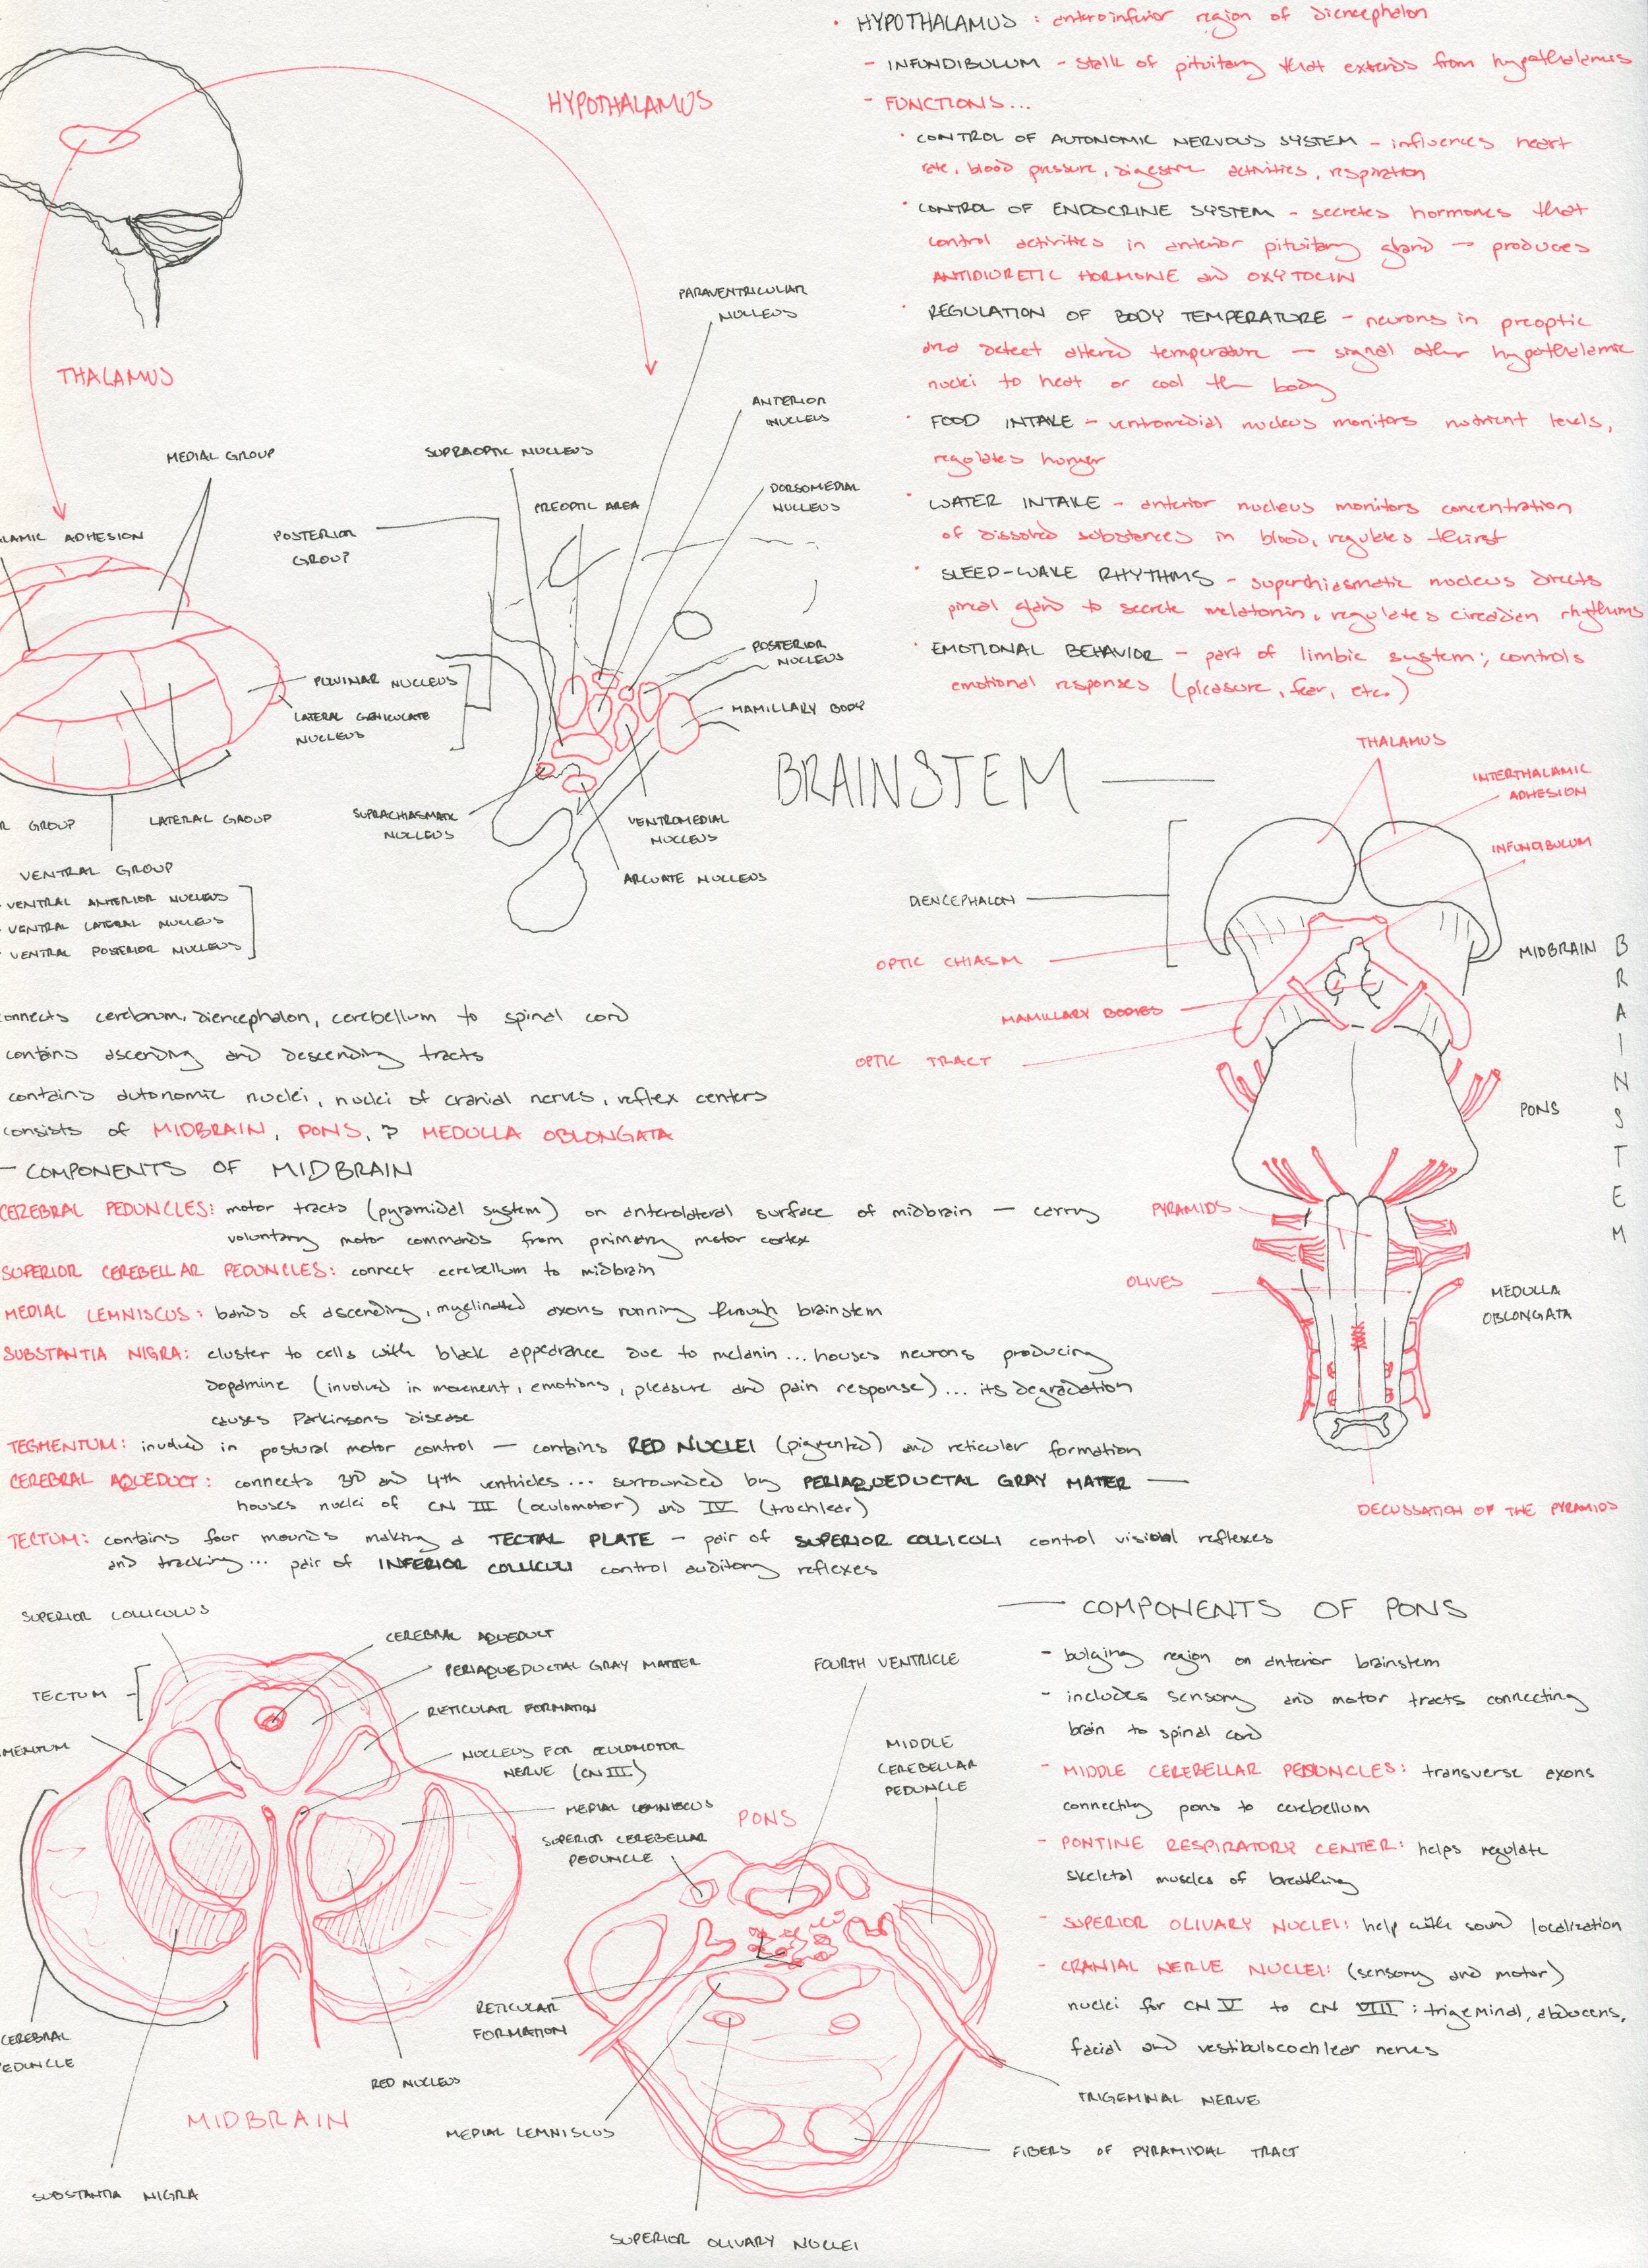 • HYPOTHALAMUS : anteroinferior region of diencephalon
- INFUNDIBULUM - stalk of pituitary that extends from hypothalamus
- FUNCTIONS...
• CONTROL OF AUTONOMIC NERVOUS SYSTEM - influences heart
rate, blood pressure, digestive activities, respiration
• CONTROL OF ENDOCRINE SYSTEM - secretes hormones that
control activities in anterior pituitary gland - produces
ANTIDIURETIC HORMONE and OXYTOCIN
• REGULATION OF BODY TEMPERATURE - neurons in preoptic
area detect altered temperature - signal other hypothalamic
nuclei to heat or cool the body
• FOOD INTAKE - ventromedial nucleus monitors nutrient levels,
regulates hunger
• WATER INTAKE - anterior nucleus monitors concentration
of dissolved substances in blood, regulates thirst
• SLEEP-WAKE RHYTHMS - superchiasmatic nucleus directs
pineal gland to secrete melatonin, regulates circadian rhythms
• EMOTIONAL BEHAVIOR - part of limbic system; controls
emotional responses (pleasure, fear, etc.)
HYPOTHALAMUS
THALAMUS
PARAVENTRICULAR
NUCLEUS
ANTERIOR
NUCLEUS
MEDIAL GROUP
SUPRAOPTIC NUCLEUS
PREOPTIC AREA
DORSOMEDIAL
NUCLEUS
LAMIC ADHESION
POSTERIOR
GROUP
POSTERIOR
NUCLEUS
PULVINAR NUCLEUS
LATERAL GENICULATE
NUCLEUS
MAMILLARY BODY
SUPRACHIASMATIC
NUCLEUS
VENTROMEDIAL
NUCLEUS
ARCUATE NUCLEUS
R GROUP
LATERAL GROUP
VENTRAL GROUP
- VENTRAL ANTERIOR NUCLEUS
- VENTRAL LATERAL NUCLEUS
- VENTRAL POSTERIOR NUCLEUS
BRAINSTEM
THALAMUS
INTERTHALAMIC
ADHESION
INFUNDIBULUM
DIENCEPHALON
OPTIC CHIASM
MAMILLARY BODIES
OPTIC TRACT
MIDBRAIN
BRAINSTEM
PONS
PYRAMIDS
OLIVES
MEDULLA
OBLONGATA
DECUSSATION OF THE PYRAMIDS
onnects cerebrum, diencephalon, cerebellum to spinal cord
contains ascending and descending tracts
contains autonomic nuclei, nuclei of cranial nerves, reflex centers
consists of MIDBRAIN, PONS, & MEDULLA OBLONGATA
- COMPONENTS OF MIDBRAIN
CEREBRAL PEDUNCLES: motor tracts (pyramidal system) on anterolateral surface of midbrain - carry
voluntary motor commands from primary motor cortex
SUPERIOR CEREBELLAR PEDUNCLES: connect cerebellum to midbrain
MEDIAL LEMNISCUS: bands of ascending, myelinated axons running through brainstem
SUBSTANTIA NIGRA: cluster to cells with black appearance due to melanin... houses neurons producing
dopamine (involved in movement, emotions, pleasure and pain response)... its degradation
causes Parkinsons disease
TEGMENTUM: involved in postural motor control - contains RED NUCLEI (pigmented) and reticular formation
CEREBRAL AQUEDUCT: connects 3rd and 4th ventricles... surrounded by PERIAQUEDUCTAL GRAY MATER -
houses nuclei of CN III (oculomotor) and IV (trochlear)
TECTUM: contains four mounds making a TECTAL PLATE - pair of SUPERIOR COLLICULI control visual reflexes
and tracking... pair of INFERIOR COLLICULI control auditory reflexes
SUPERIOR COLLICULUS
CEREBRAL AQUEDUCT
PERIAQUEDUCTAL GRAY MATTER
TECTUM
RETICULAR FORMATION
MENTUM
NUCLEUS FOR OCULOMOTOR
NERVE (CN III)
MEDIAL LEMNISCUS
CEREBRAL
PEDUNCLE
RED NUCLEUS
MIDBRAIN
SUBSTANTIA NIGRA
FOURTH VENTRICLE
MIDDLE
CEREBELLAR
PEDUNCLE
PONS
SUPERIOR CEREBELLAR
PEDUNCLE
RETICULAR
FORMATION
MEDIAL LEMNISCUS
TRIGEMINAL NERVE
FIBERS OF PYRAMIDAL TRACT
SUPERIOR OLIVARY NUCLEI
- COMPONENTS OF PONS
- bulging region on anterior brainstem
- includes sensory and motor tracts connecting
brain to spinal cord
- MIDDLE CEREBELLAR PEDUNCLES: transverse axons
connecting pons to cerebellum
- PONTINE RESPIRATORY CENTER: helps regulate
skeletal muscles of breathing
- SUPERIOR OLIVARY NUCLEI: help with sound localization
- CRANIAL NERVE NUCLEI: (sensory and motor)
nuclei for CN V to CN VIII : trigeminal, abducens,
facial and vestibulocochlear nerves